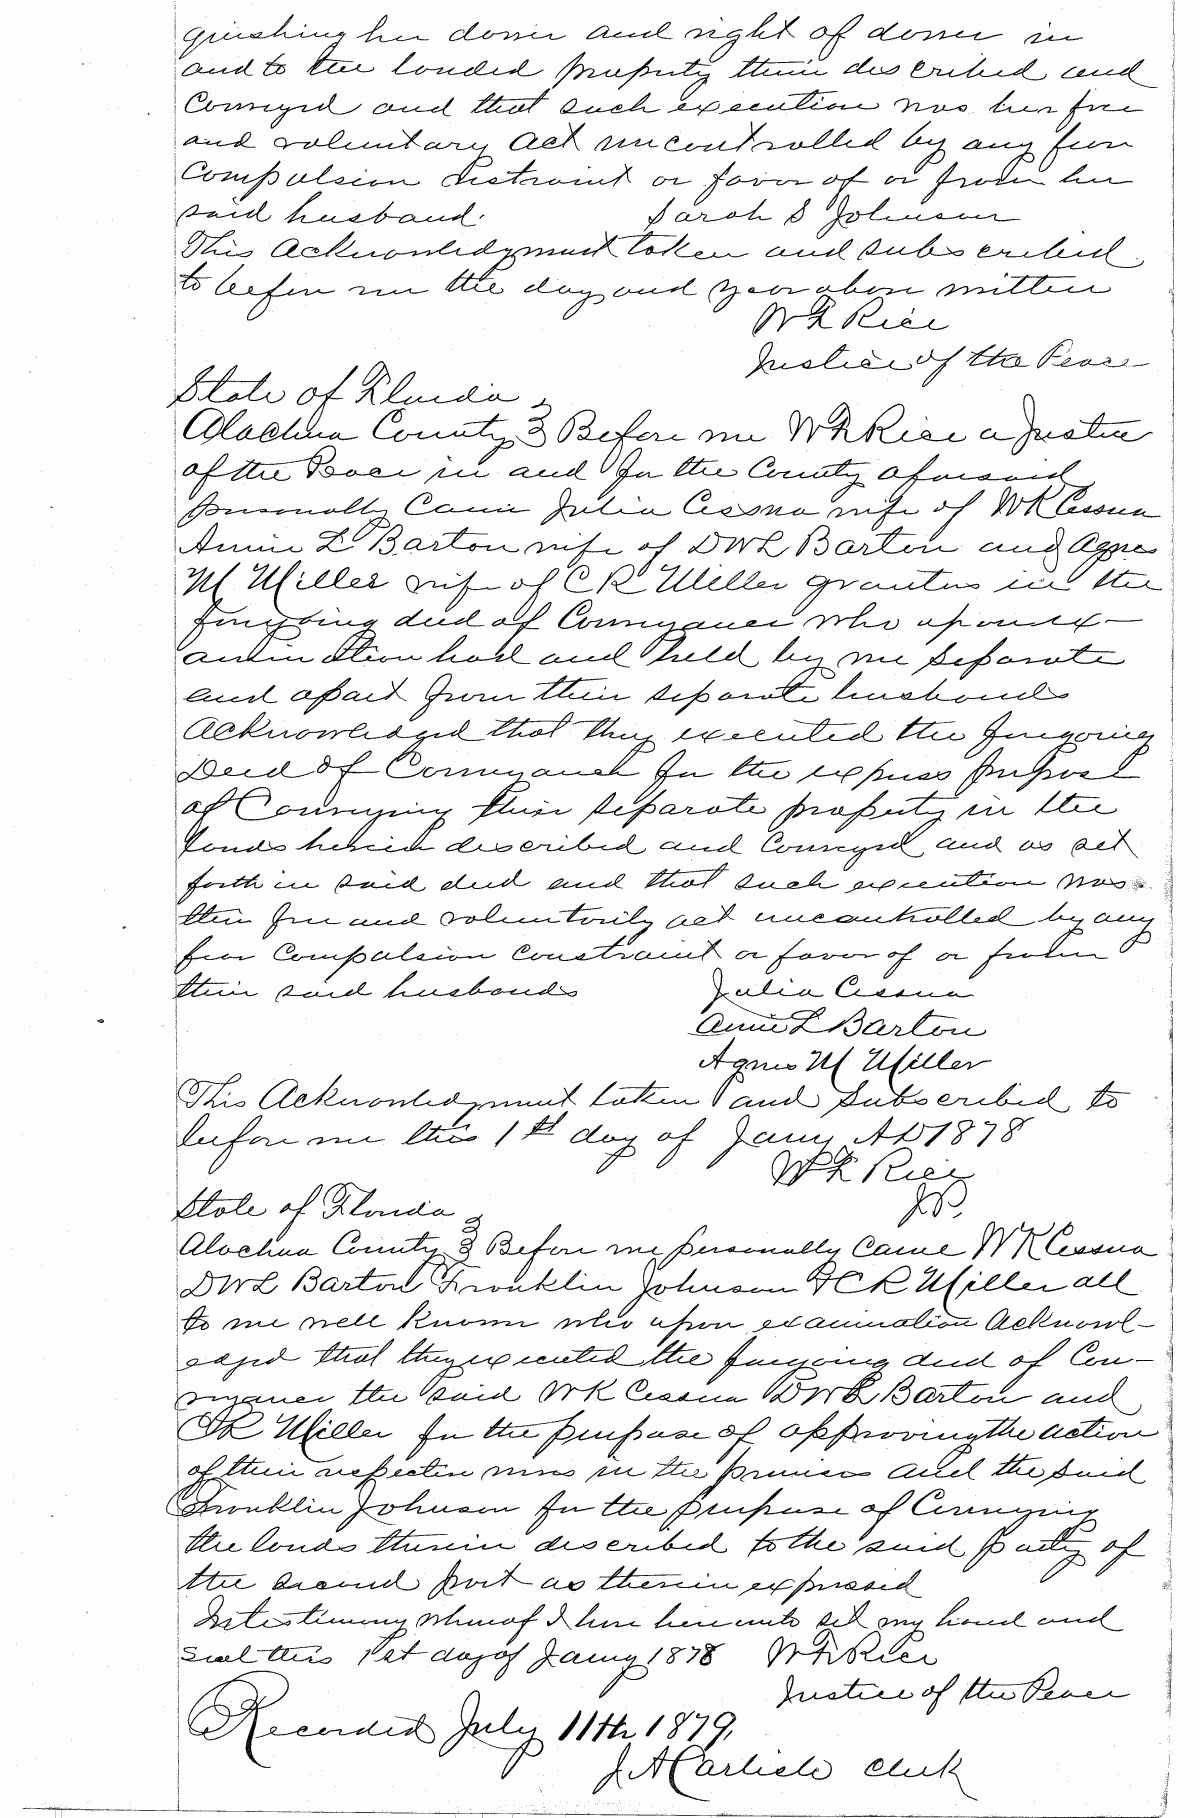 quishing her dower and right of dower in
and to the landed property therein described and
Conveyed and that such execution was her free
and voluntary act uncontrolled by any fear
Compulsion restraint or favor of or from her
said husband. Sarah S Johnson
This Acknowledgment taken and subscribed
to before me the day and year above written
W F Rice
Justice of the Peace
State of Florida
Alachua County } Before me W F Rice a Justice
of the Peace in and for the County aforesaid
personally Came Julia Cessna wife of W K Cessna
Annie L Barton wife of D W L Barton and Agnes
M Miller wife of C R Miller grantors in the
foregoing deed of Conveyance who upon ex-
amination had and held by me separate
and apart from their separate husbands
Acknowledged that they executed the foregoing
Deed of Conveyance for the express purpose
of Conveying their separate property in the
lands herein described and Conveyed and as set
forth in said deed and that such execution was
their free and voluntarily act uncontrolled by any
fear Compulsion constraint or favor of or from
their said husbands Julia Cessna
Annie L Barton
Agnes M Miller
This Acknowledgment taken and subscribed to
before me this 1st day of Jany AD 1878
W F Rice
J.P.
State of Florida
Alachua County } Before me personally Came W K Cessna
D W L Barton Franklin Johnson & C R Miller all
to me well known who upon examination Acknowl-
edged that they executed the foregoing deed of Con-
veyance the said W K Cessna D W L Barton and
C R Miller for the purpose of approving the action
of their respective wives in the premises and the said
Franklin Johnson for the purpose of Conveying
the lands therein described to the said party of
the second part as therein expressed
In testimony whereof I have hereunto set my hand and
seal this 1st day of Jany 1878 W F Rice
Justice of the Peace
Recorded July 11th 1879,
J A Carlisle Clerk